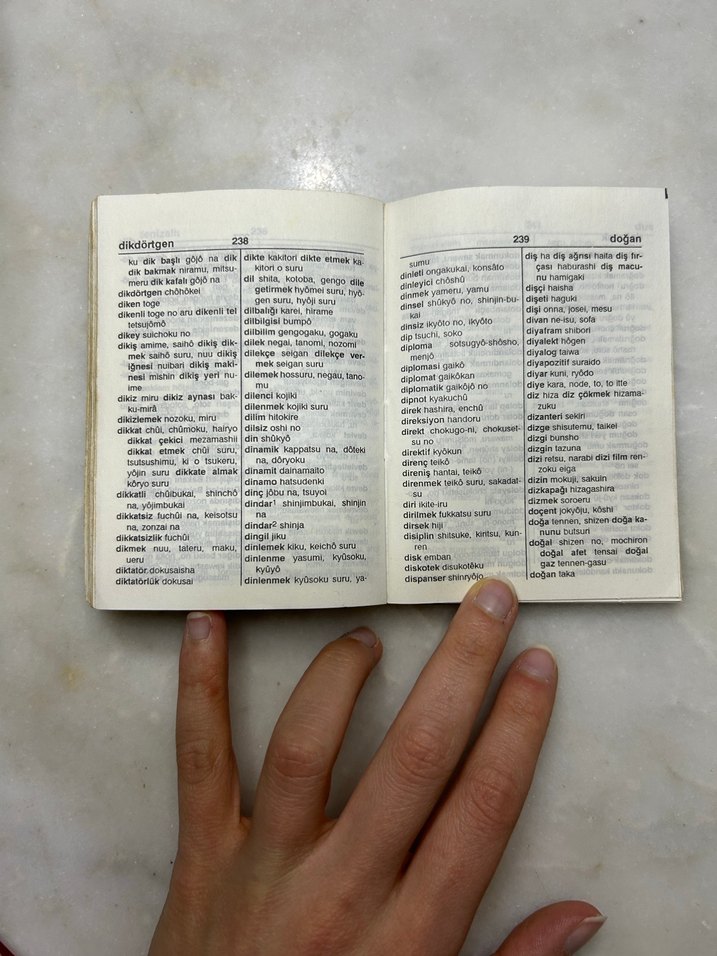 dikdörtgen 238
ku dik başlı gôjô na dik
dik bakmak niramu, mitsu-
meru dik kafalı gôjô na
dikdörtgen chôhôkei
diken toge
dikenli toge no aru dikenli tel
tetsujômô
dikey suichoku no
dikiş amime, saihô dikiş dik-
mek saihô suru, nuu dikiş
iğnesi nuibari dikiş maki-
nesi mishin dikiş yeri nu-
ime
dikiz miru dikiz aynası bak-
ku-mirâ
dikizlemek nozoku, miru
dikkat chûi, chûmoku, hairyo
dikkat çekici mezamashii
dikkat etmek chûi suru,
tsutsushimu, ki o tsukeru,
yôjin suru dikkate almak
kôryo suru
dikkatli chûibukai, shinchô
na, yôjimbukai
dikkatsiz fuchûi na, keisotsu
na, zonzai na
dikkatsizlik fuchûi
dikmek nuu, tateru, maku,
ueru
diktatör dokusaisha
diktatörlük dokusai
dikte kakitori dikte etmek ka-
kitori o suru
dil shita, kotoba, gengo dile
getirmek hyômei suru, hyô-
gen suru, hyôji suru
dilbalığı karei, hirame
dilbilgisi bumpô
dilbilim gengogaku, gogaku
dilek negai, tanomi, nozomi
dilekçe seigan dilekçe ver-
mek seigan suru
dilemek hossuru, negau, tano-
mu
dilenci kojiki
dilenmek kojiki suru
dilim hitokire
dilsiz oshi no
din shûkyô
dinamik kappatsu na, dôteki
na, dôryoku
dinamit dainamaito
dinamo hatsudenki
dinç jôbu na, tsuyoi
dindar¹ shinjimbukai, shinjin
na
dindar² shinja
dingil jiku
dinlemek kiku, keichô suru
dinlenme yasumi, kyûsoku,
kyûyô
dinlenmek kyûsoku suru, ya-
239 doğan
sumu
dinleti ongakukai, konsâto
dinleyici chôshû
dinmek yameru, yamu
dinsel shûkyô no, shinjin-bu-
kai
dinsiz ikyôto no, ikyôto
dip tsuchi, soko
diploma sotsugyô-shôsho,
menjô
diplomasi gaikô
diplomat gaikôkan
diplomatik gaikôjô no
dipnot kyakuchû
direk hashira, enchû
direksiyon handoru
direkt chokugo-ni, chokuset-
su no
direktif kyôkun
direnç teikô
direniş hantai, teikô
direnmek teikô suru, sakadat-
su
diri ikite-iru
dirilmek fukkatsu suru
dirsek hiji
disiplin shitsuke, kiritsu, kun-
ren
disk emban
diskotek disukotêku
dispanser shinryôjo
diş ha diş ağrısı haita diş fır-
çası haburashi diş macu-
nu hamigaki
dişçi haisha
dişeti haguki
dişi onna, josei, mesu
divan ne-isu, sofa
diyafram shibori
diyalekt hôgen
diyalog taiwa
diyapozitif suraido
diyar kuni, ryôdo
diye kara, node, to, to itte
diz hiza diz çökmek hizama-
zuku
dizanteri sekiri
dizge shisutemu, taikei
dizgi bunsho
dizgin tazuna
dizi retsu, narabi dizi film ren-
zoku eiga
dizin mokuji, sakuin
dizkapağı hizagashira
dizmek soroeru
doçent jokyôju, kôshi
doğa tennen, shizen doğa ka-
nunu butsuri
doğal shizen no, mochiron
doğal afet tensai doğal
gaz tennen-gasu
doğan taka